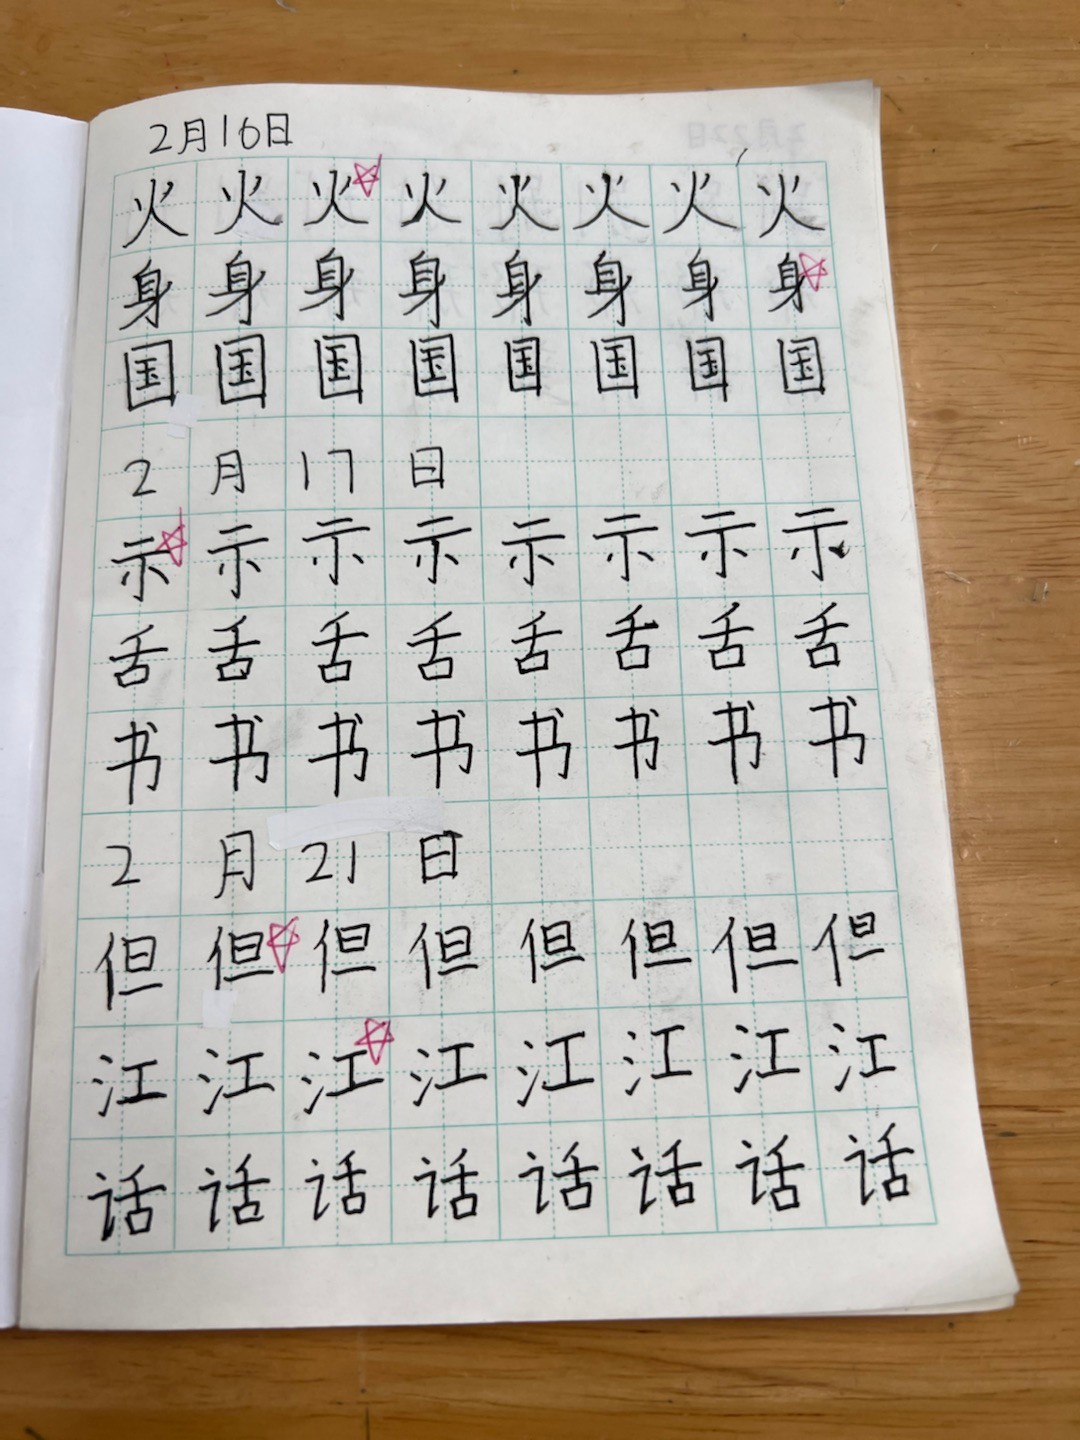 2月16日
火火火火火火火火
身身身身身身身身
国国国国国国国国
2月17日
示示示示示示示示
舌舌舌舌舌舌舌舌
书书书书书书书书
2月21日
但但但但但但但但
江江江江江江江江
话话话话话话话话